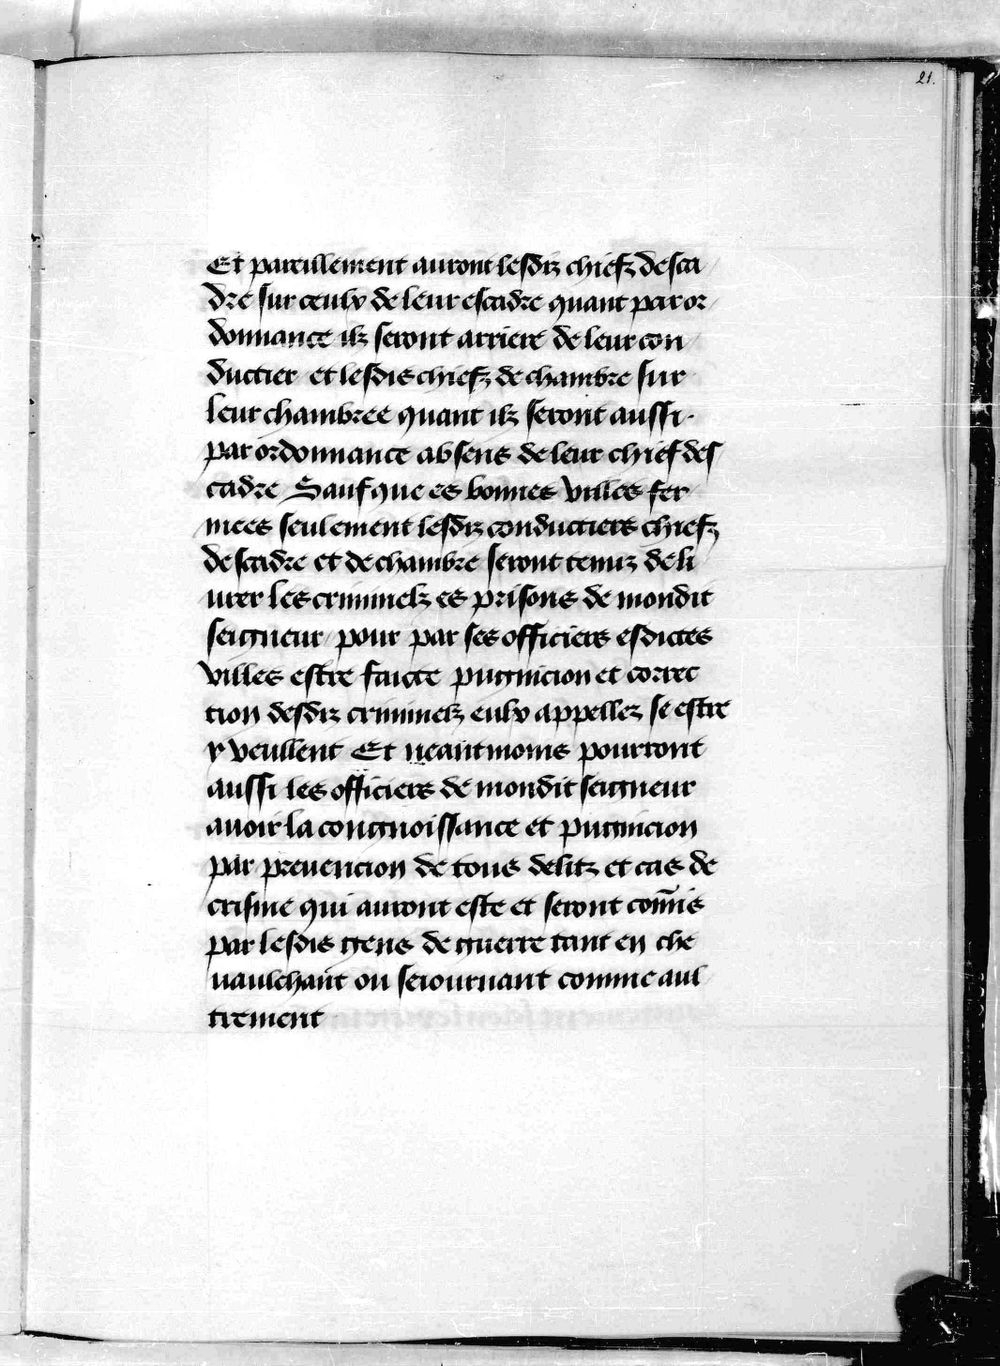 21.
Et pareillement auront lesdiz chiefz desca
dre sur ceulx de leur escadre quant par or
donnance ilz seront arriere de leur con
ductier et lesdis chiefz de chambre sur
leur chambree quant ilz seront aussi
par ordonnance absens de leur chief des
cadre Sauf que es bonnes villes fer
mees seulement lesdiz conductiers chiefz
descadre et de chambre seront tenuz de li
urer les criminelz es prisons de mondit
seigneur pour par ses officiers esdictes
villes estre faicte pugnicion et correc
tion desdiz criminelz eulx appellez se estre
y veullent Et neantmoins pourront
aussi les officiers de mondit seigneur
auoir la congnoissance et pugnicion
par preuencion de tous delitz et cas de
crisme qui auront este et seront com̃is
par lesdis gens de guerre tant en che
uaulchant ou seiournant comme aul
trement